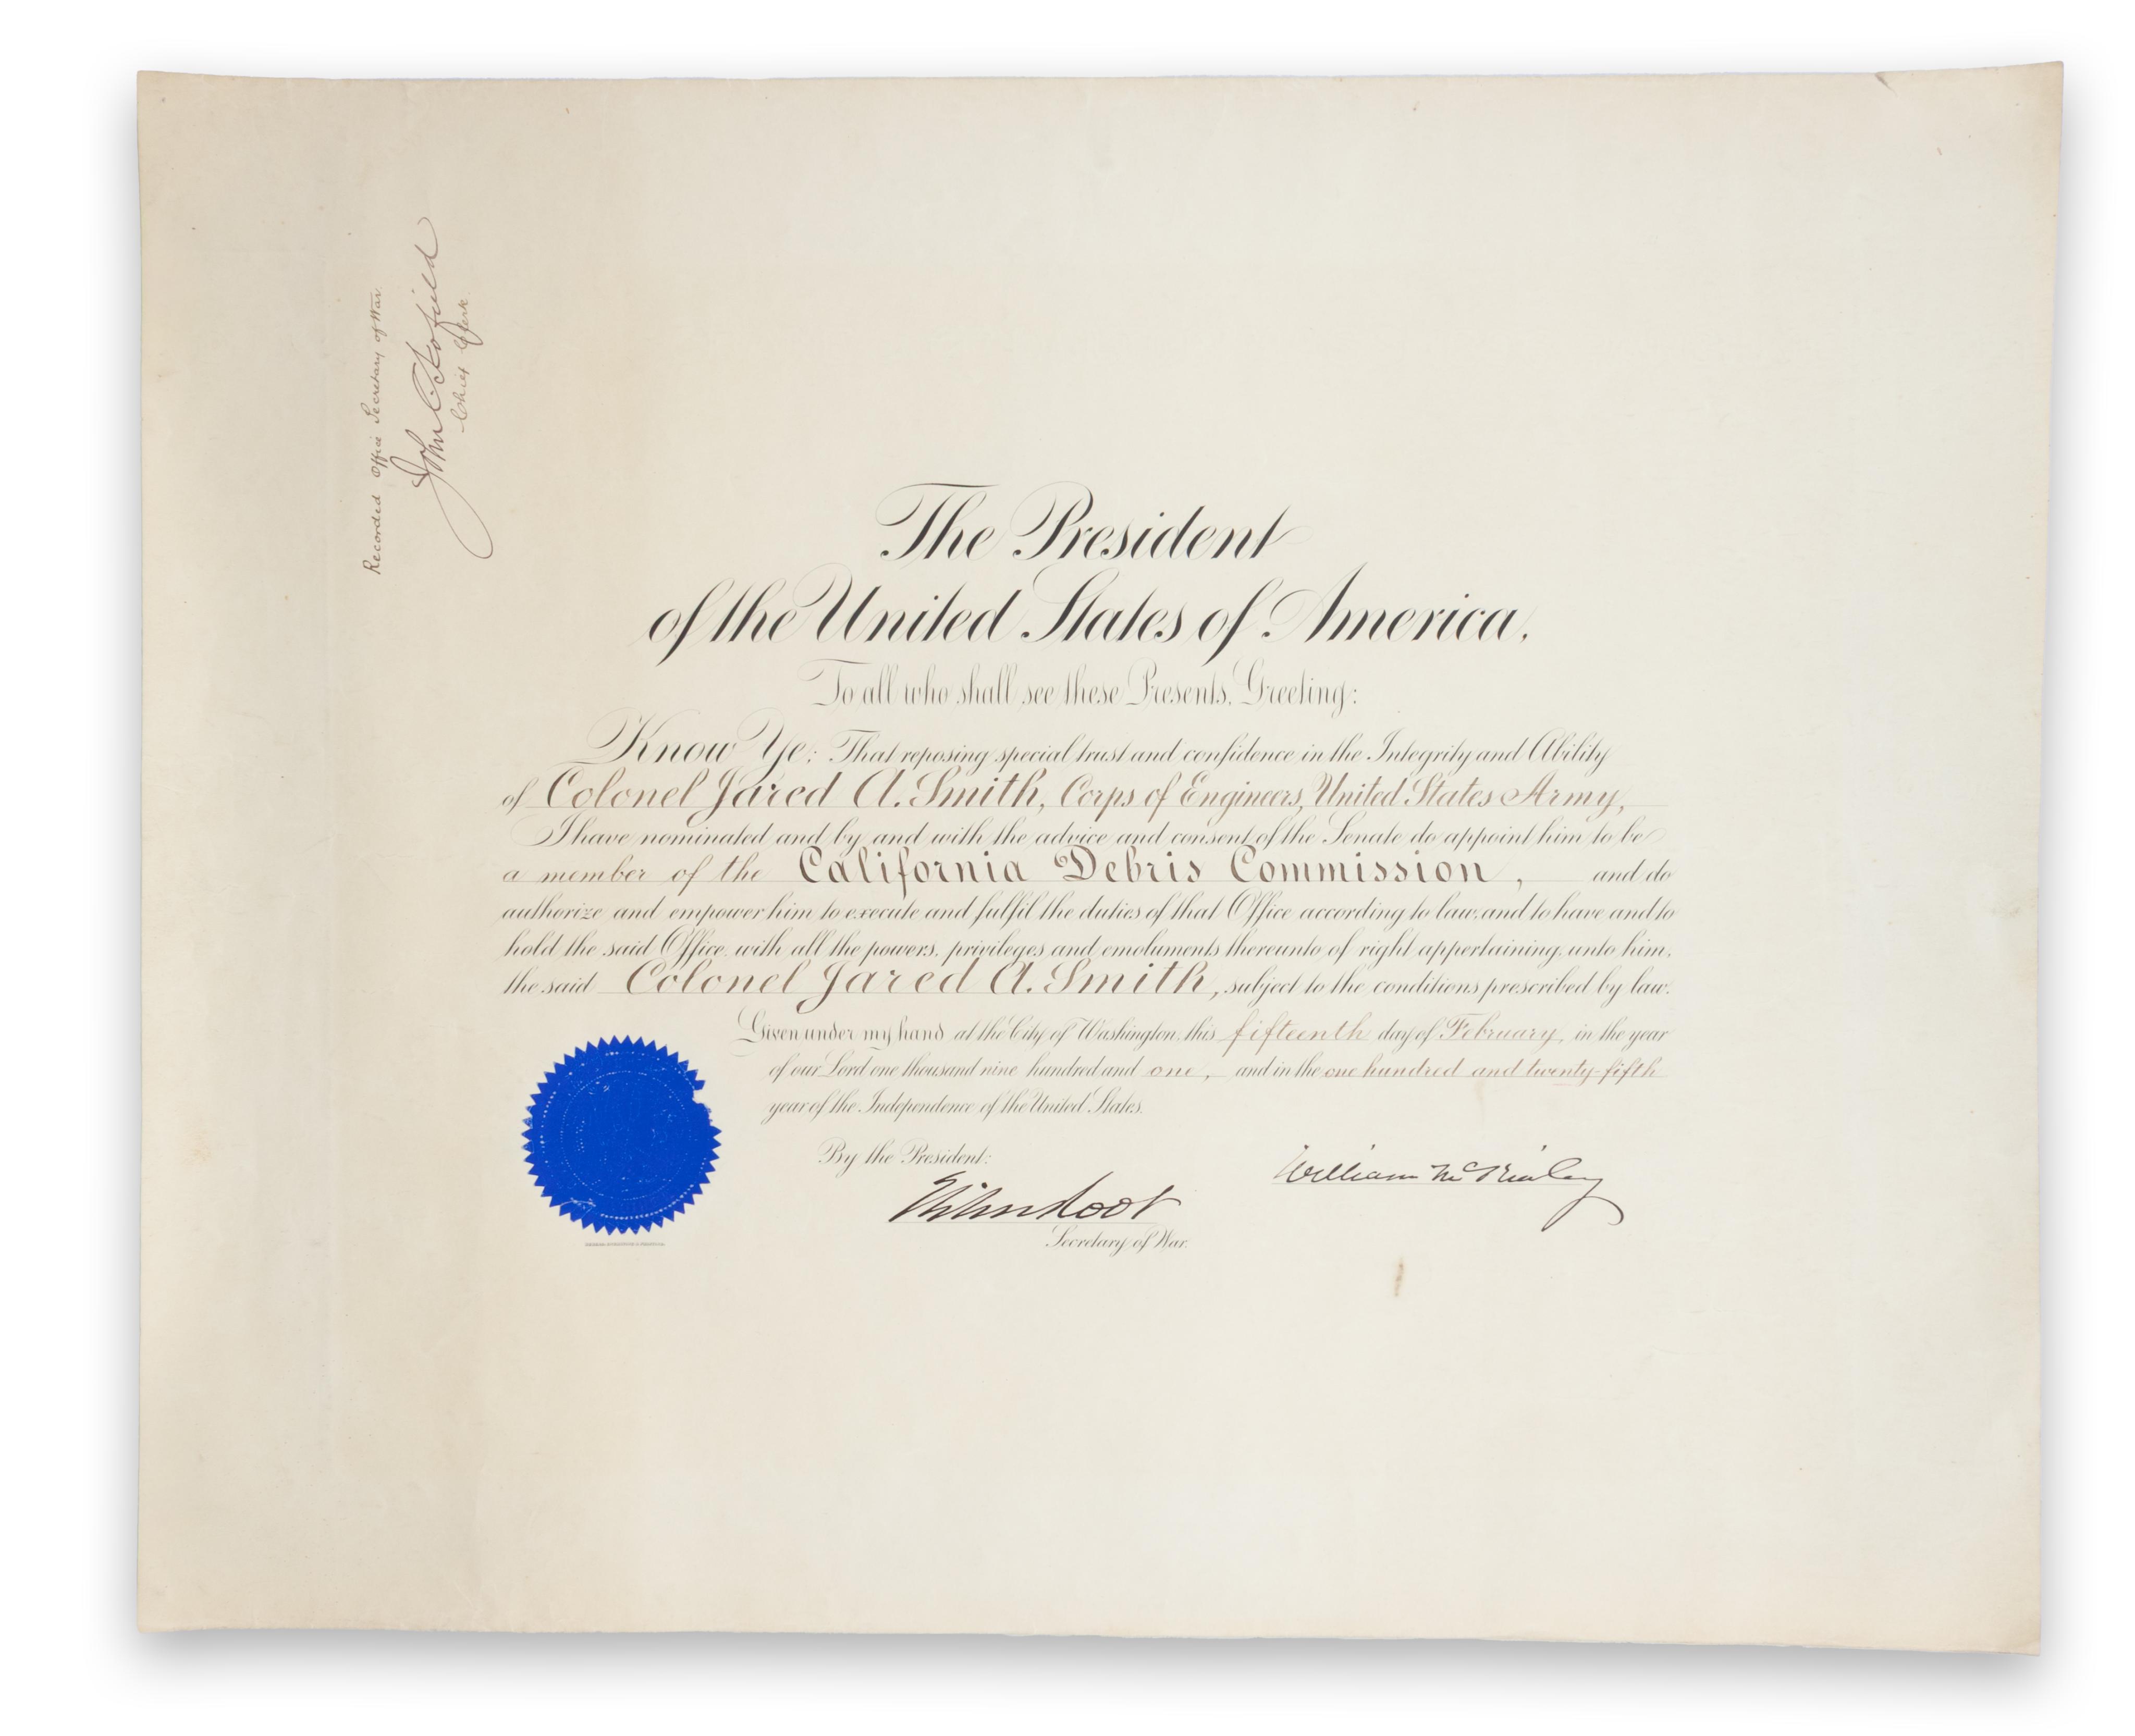 Recorded Office Secretary of War.
John C Scofield
Chief Clerk.
The President
of the United States of America,
To all who shall see these Presents, Greeting:
Know Ye; That reposing special trust and confidence in the Integrity and Ability
of Colonel Jared A. Smith, Corps of Engineers, United States Army,
I have nominated and by and with the advice and consent of the Senate do appoint him to be
a member of the California Debris Commission, and do
authorize and empower him to execute and fulfil the duties of that Office according to law, and to have and to
hold the said Office, with all the powers, privileges and emoluments thereunto of right appertaining, unto him,
the said Colonel Jared A. Smith, subject to the conditions prescribed by law.
Given under my hand at the City of Washington, this fifteenth day of February, in the year
of our Lord one thousand nine hundred and one, and in the one hundred and twenty-fifth
year of the Independence of the United States.
By the President:
William McKinley
Elihu Root
Secretary of War.